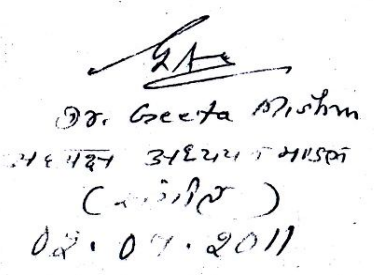 Dr. Geeta Mishra
अध्ययन मण्डल
(संगीत)
02.07.2011